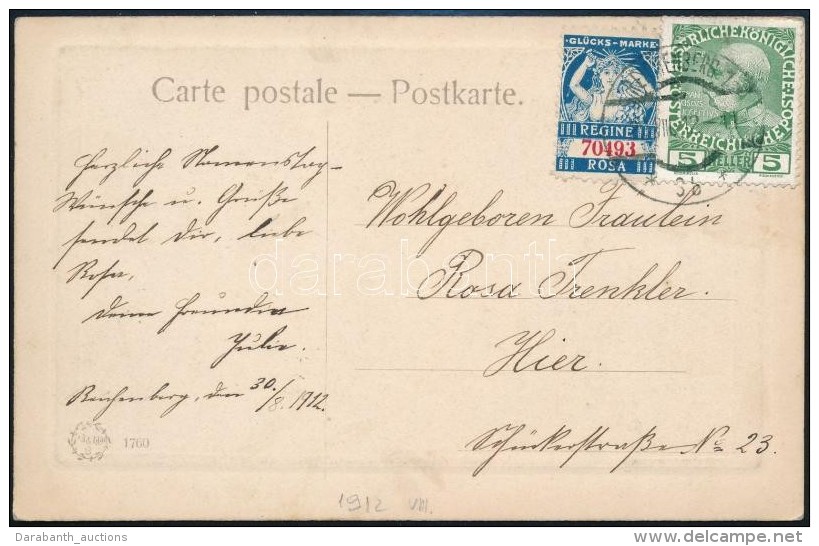 Carte postale — Postkarte.
GLÜCKS-MARKE
REGINE
70493
ROSA
KAISERLICHE KÖNIGLICHE ÖSTERREICHISCHE
5 HELLER 5
REICHENBERG
Herzliche Namenstag-
Wünsche u. Grüße
sendet Dir, liebe
Rosa,
Deine Freundin
Julie.
Reichenberg, den 30./8. 1912.
Wohlgeboren Fräulein
Rosa Trenkler.
Hier.
Schückerstraße No 23.
1760
1912 VIII.
darabanth
Darabanth_auctions
www.delcampe.net